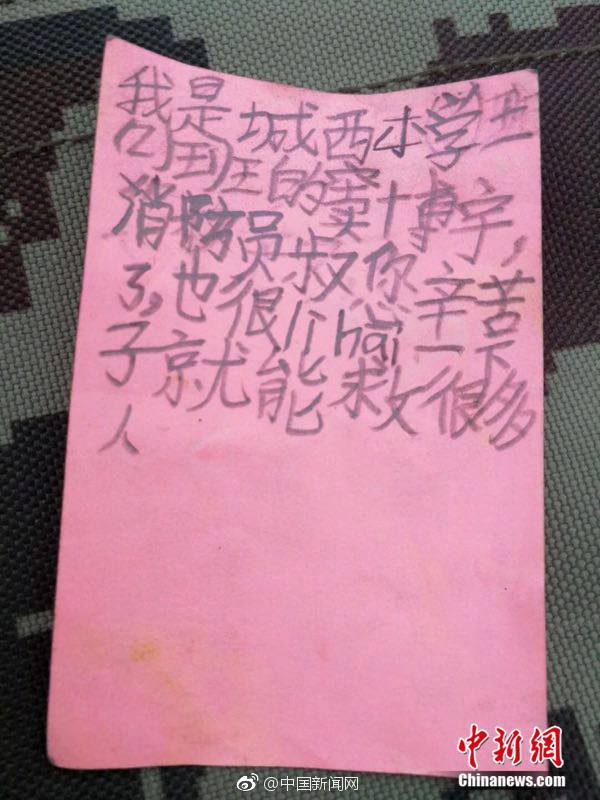 我是城西小学
班的窦博宇，
消防员叔你辛苦
了，也很li hai一下
子就能救很多
人
@中国新闻网
中新网
Chinanews.com